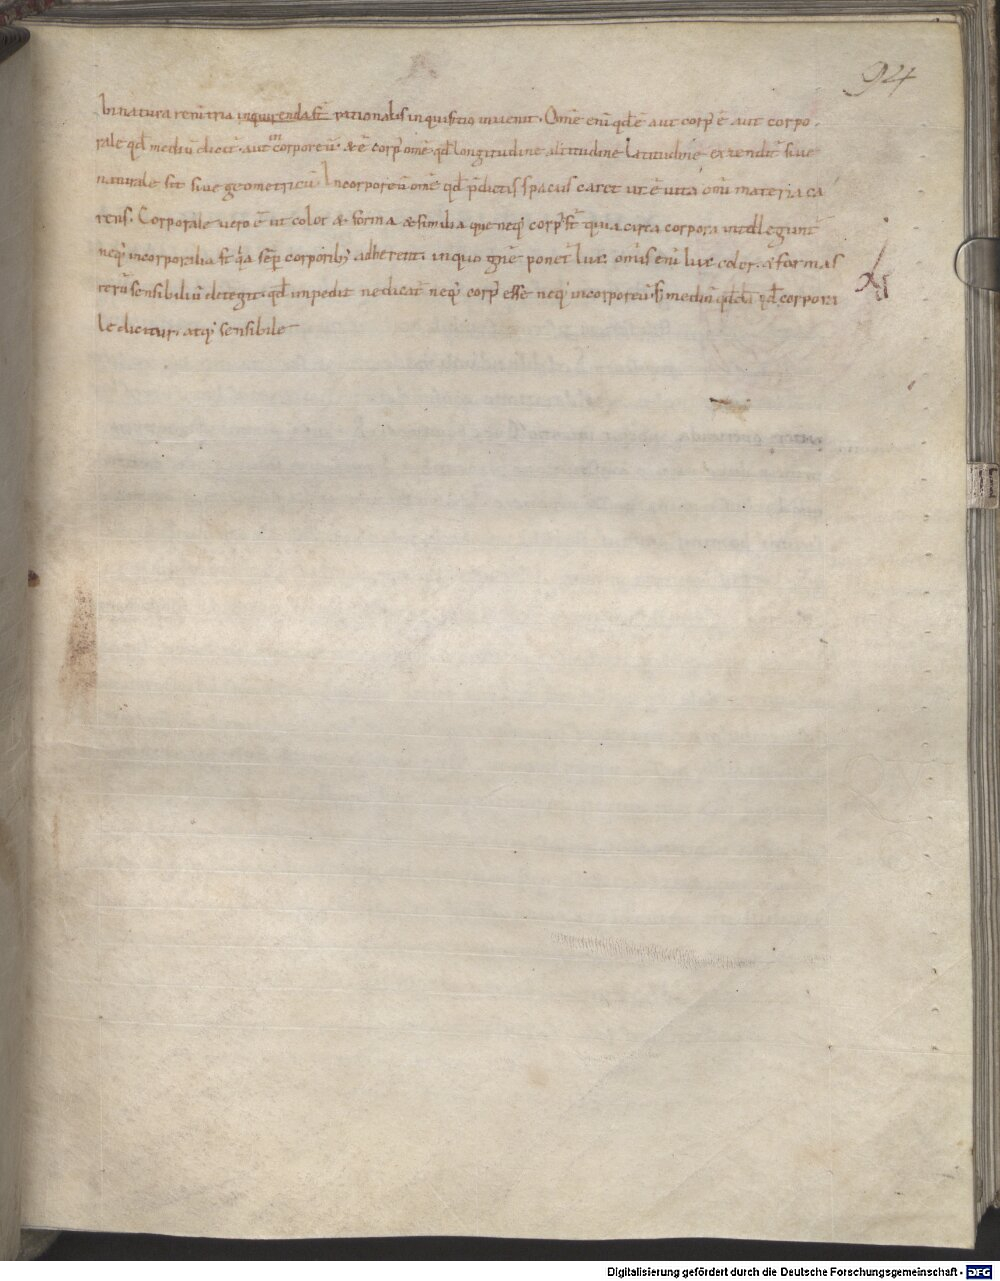 94
In natura rerū tria inquirenda st̄ rationalis inquisitio invenit. Om̄e eni qd̄ ē aut corp' ē aut corpo
rale qd̄ mediū dicit̄. aut incorporeū. & ē corp' om̄e qd̄ longitudine altitudine latitudine extendit̄ sive
naturale sit sive geometricū. Incorporeū om̄e qd̄ p̄dictis spaciis caret ut ē vita om̄i materia ca
rens. Corporale vero ē ut color & forma & similia que neq' corp' st̄ quia circa corpora intellegunt̄
neq' incorporalia st̄ q'a sēp corporib' adherent. in quo gn̄e ponet̄ lux. om̄is eni lux color & formas
rerū sensibiliū detegit. qd̄ impedit ne dicat̄ neq' corp' esse neq' incorporeū s; mediū qd̄dā qd̄ corpora
le dicitur. atq' sensibile
Digitalisierung gefördert durch die Deutsche Forschungsgemeinschaft - DFG